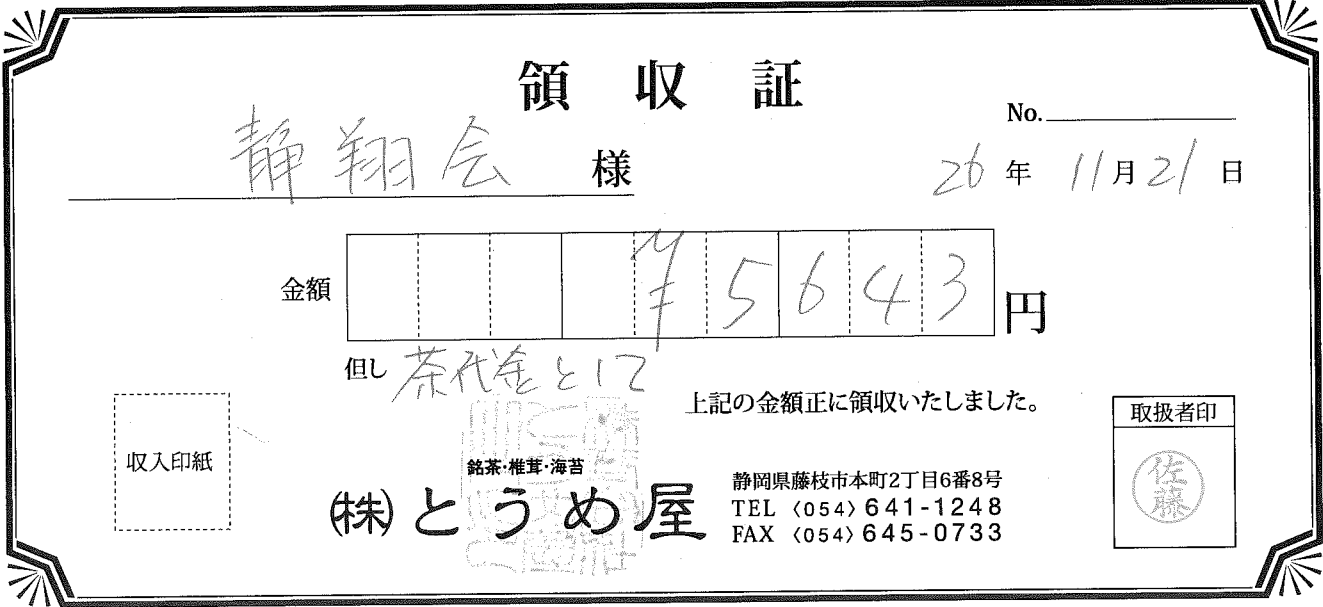 領収証
No.
静翔会 様
26年 11月21日
金額 ¥5643円
但し 茶代金として
上記の金額正に領収いたしました。
収入印紙
取扱者印
佐藤
銘茶・椎茸・海苔
㈱とうめ屋
静岡県藤枝市本町2丁目6番8号
TEL〈054〉641-1248
FAX〈054〉645-0733